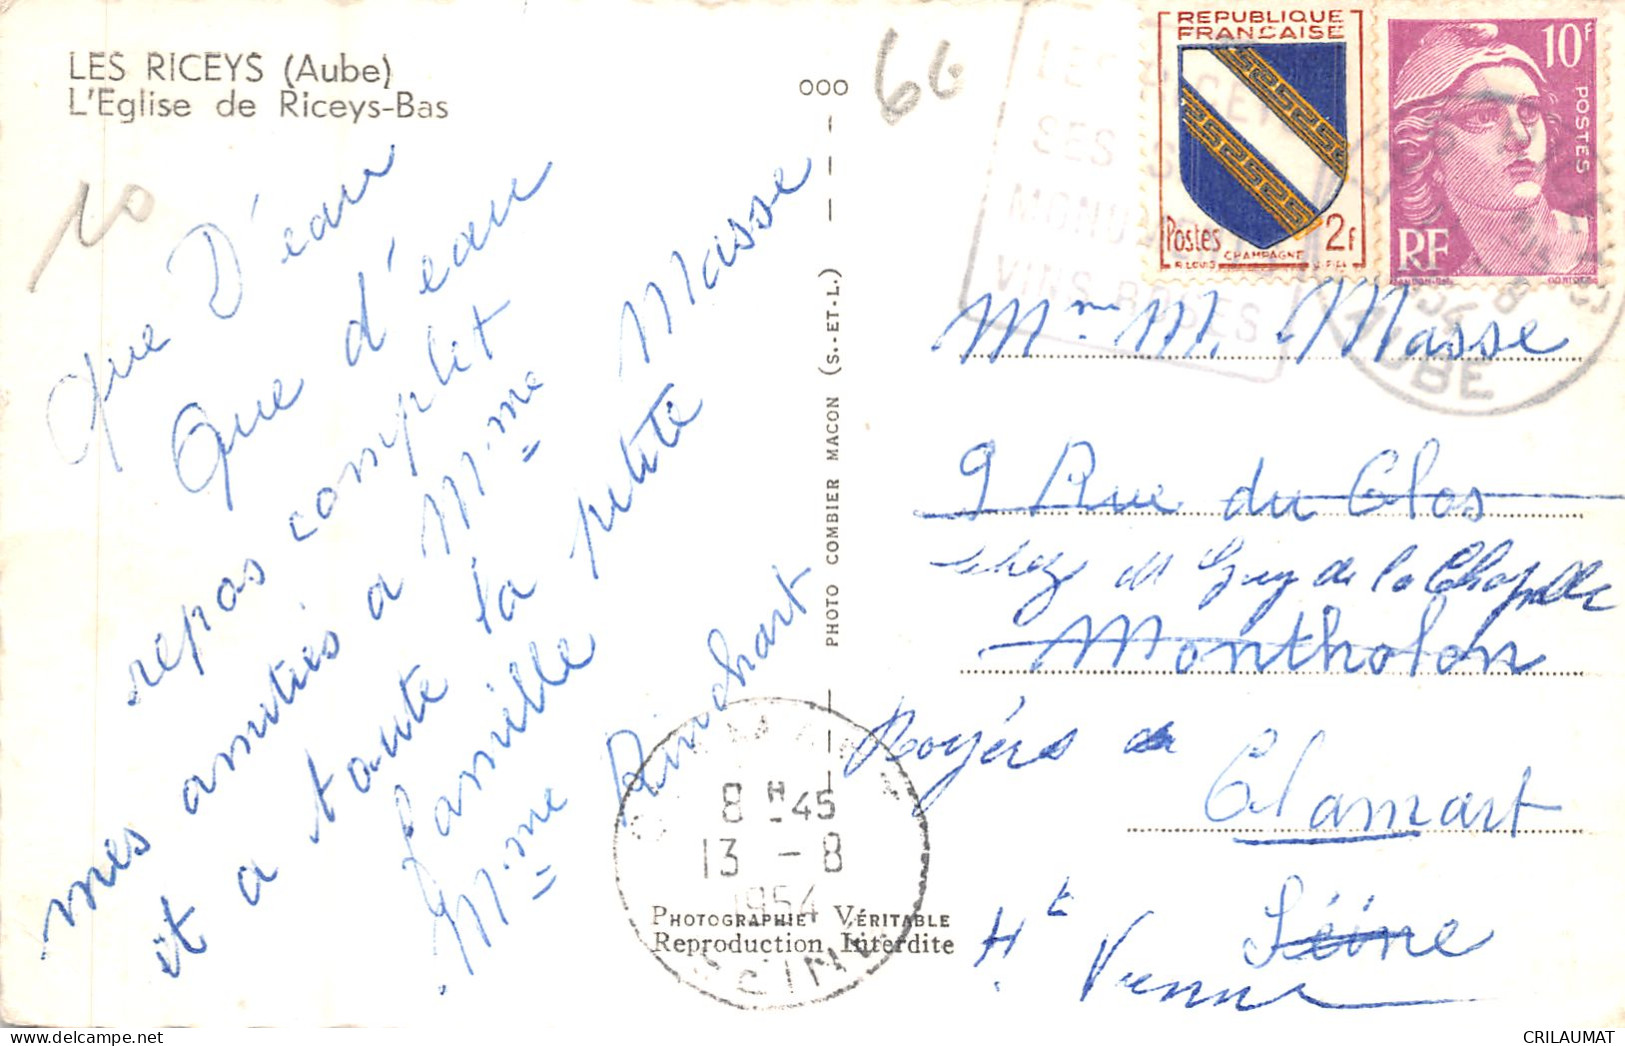 LES RICEYS (Aube)
L'Eglise de Riceys-Bas
10
Que D'eau
Que d'eau
repos complet
mes amitiés a Mme Masse
et a toute la petite
famille
Mme Rinchart
OOO
PHOTO COMBIER MACON (S.-ET-L.)
66
LES RICEYS
SES
MONU
VINS ROSES
REPUBLIQUE
FRANÇAISE
Postes 2F
CHAMPAGNE
R. LOUIS
10F
POSTES
RF
GANDON
AUBE
Mme M. Masse
9 Rue du Clos
chez M Guy de la Chapelle
Montholon
Royères de
Clamart
Seine
Hte Vienne
8H45
13 - 8
1954
SEINE
PHOTOGRAPHIE VÉRITABLE
Reproduction Interdite
CRILAUMAT